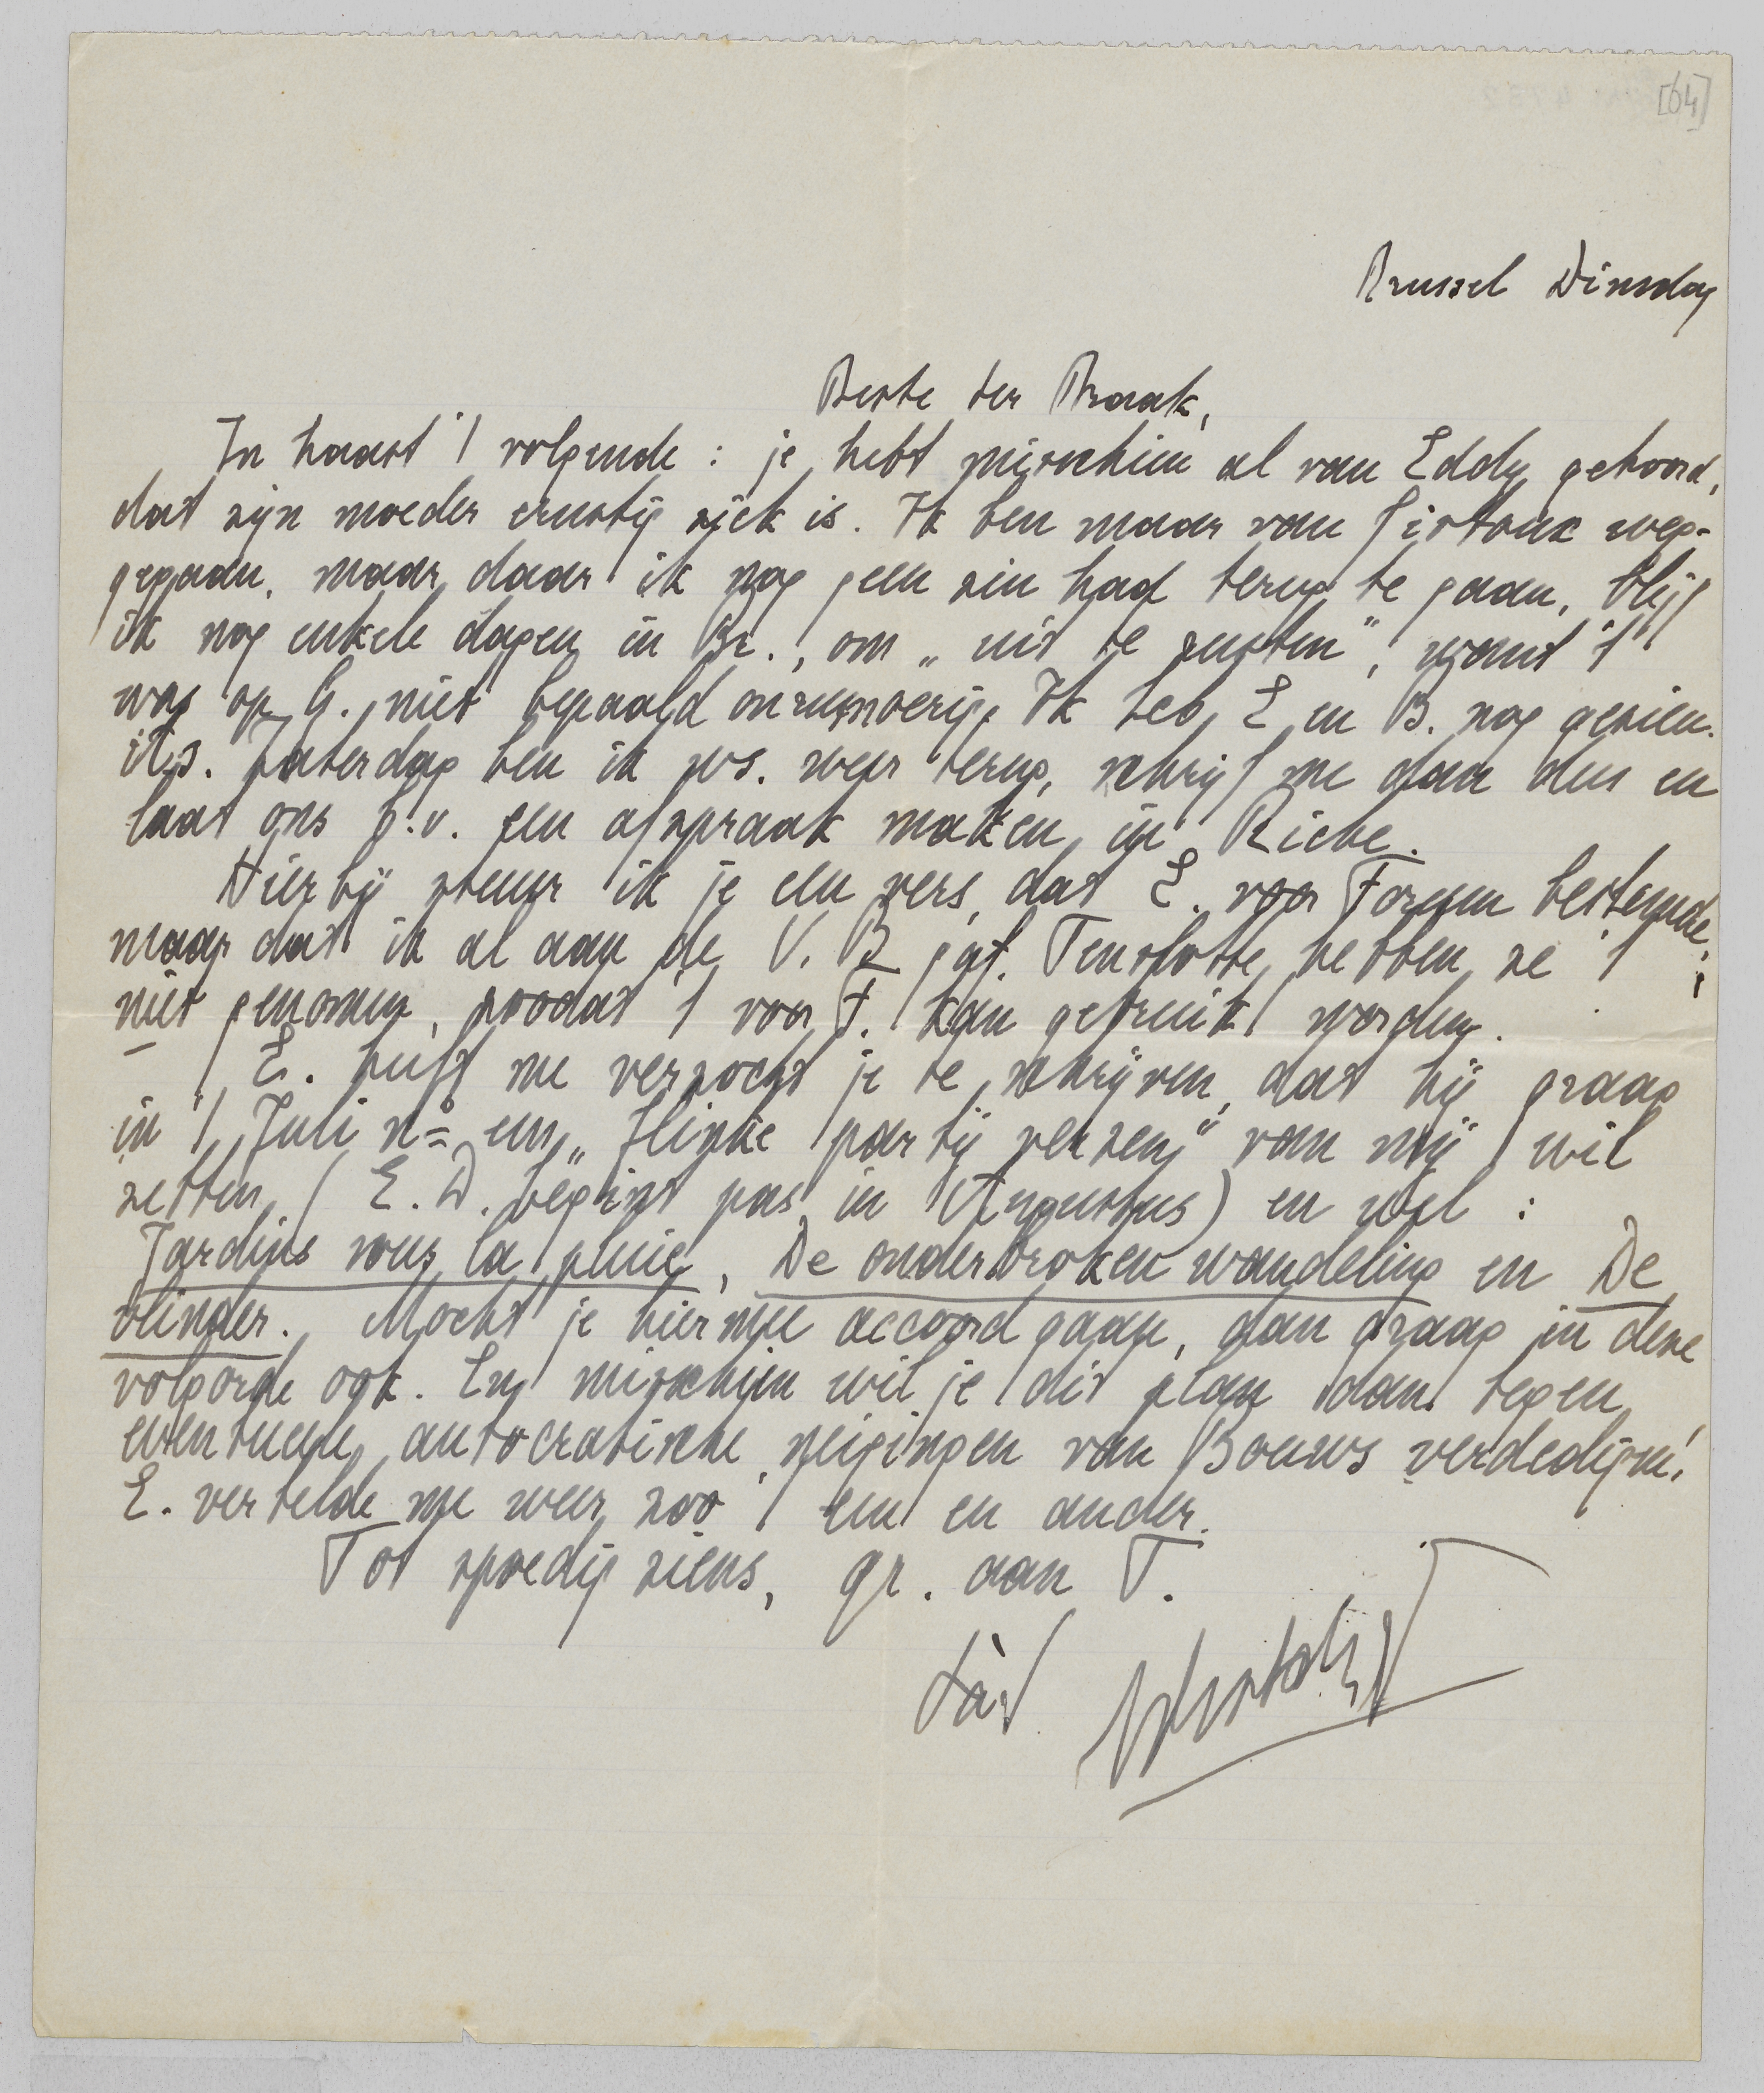 [64]
Brussel Dinsdag
Beste ter Braak,
In haast 't volgende : je hebt misschien al van Eddy gehoord,
dat zijn moeder ernstig ziek is. Ik ben maar van Gistoux weg-
gegaan, maar daar ik nog geen zin had terug te gaan, blijf
ik nog enkele dagen in Br., om „uit te rusten”, want 't
was op G. niet bepaald onrumoerig. Ik heb E en B. nog gezien.
Zaterdag ben ik ws. weer terug, schrijf me dan dus en
laat ons b.v. een afspraak maken in Riche.
Hierbij stuur ik je een vers, dat E. voor Forum bestemde,
maar dat ik al aan de V. B gaf. Tenslotte hebben ze 't
niet genomen, zoodat 't voor F. kan gebruikt worden.
E. heeft me verzocht je te schrijven, dat hij graag
in 't Juli no een „flinke partij verzen” van mij wil
zetten (E. D. begint pas in Augustus) en wel :
Jardins sous la pluie, De onderbroken wandeling en De
vlinder. Mocht je hiermee accoord gaan, dan graag in deze
volgorde ook. En misschien wil je dit plan dan tegen
eventueele autocratische neigingen van Bouws verdedigen!
E. vertelde me weer zoo 't een en ander.
Tot spoedig ziens, gr. aan T.